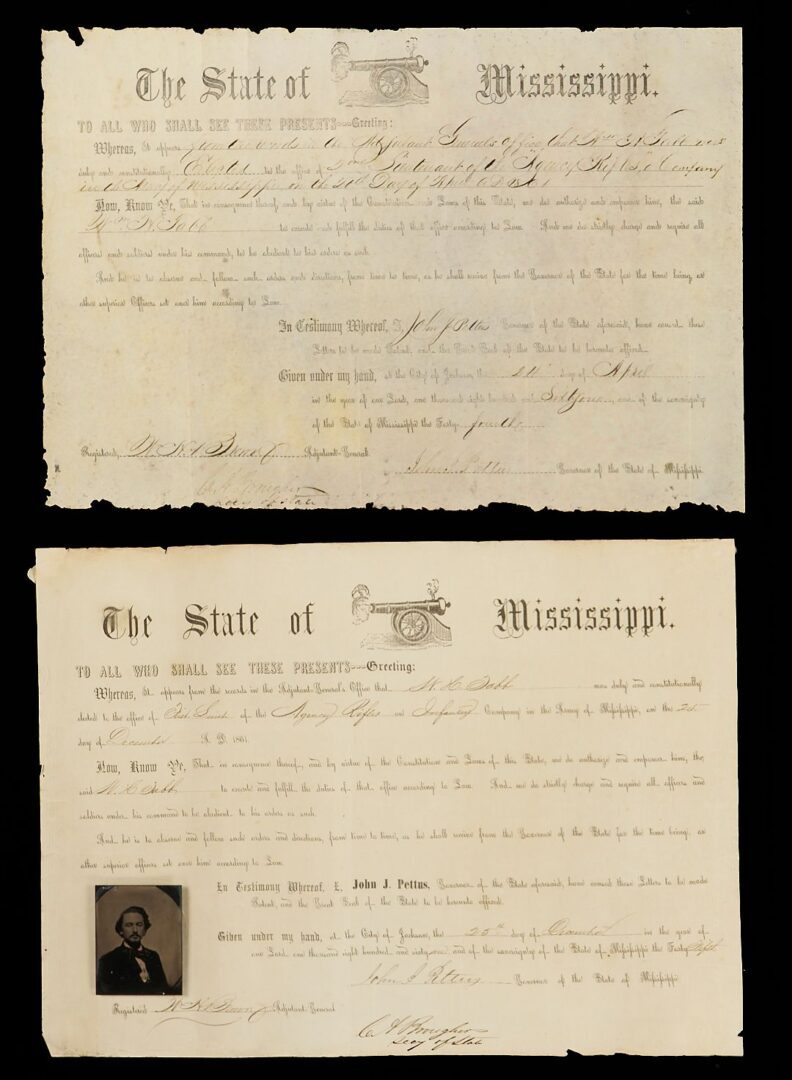 The State of Mississippi.
TO ALL WHO SHALL SEE THESE PRESENTS---Greeting:
Whereas, It appears from the records in the Adjutant General's office, that Wm Tabb was
duly and constitutionally Elected to the office of 2nd Lieutenant of the Agency Rifles, a Company
in the Army of Mississippi on the 20th Day of April A.D.
Now, Know Ye, That in consequence thereof, and by virtue of the Constitution and Laws of this State, we do authorize and empower him, the said
Wm Tabb to execute and fulfill the duties of that office according to Law. And we do strictly charge and require all
officers and soldiers under his command, to be obedient to his orders as such.
And he is to observe and follow such orders and directions, from time to time, as he shall receive from the Governor of the State for the time being, or
other superior Officers set over him according to Law.
In Testimony Whereof, I, John J Pettus Governor of the State aforesaid, have caused these
Letters to be made Patent, and the Great Seal of the State to be hereunto affixed.
Given under my hand, at the City of Jackson, the day of April
in the year of our Lord, one thousand eight hundred and Sixty one, and of the sovereignty
of the State of Mississippi the Forty fourth
Registered, Adjutant-General.
John J. Pettus Governor of the State of Mississippi
C A Brougher
Secy of State
The State of Mississippi.
TO ALL WHO SHALL SEE THESE PRESENTS---Greeting:
Whereas, It appears from the records in the Adjutant-General's Office that W. H. Tabb was duly and constitutionally
elected to the office of First Lieut of the Agency Rifles an Infantry Company in the Army of Mississippi, on the
day of December A. D. 1861.
Now, Know Ye, That in consequence thereof, and by virtue of the Constitution and Laws of this State, we do authorize and empower him, the
said W. H. Tabb to execute and fulfill the duties of that office according to Law. And we do strictly charge and require all officers and
soldiers under his command to be obedient to his orders as such.
And he is to observe and follow such orders and directions, from time to time, as he shall receive from the Governor of the State for the time being, or
other superior officers set over him according to Law.
In Testimony Whereof, I, John J. Pettus, Governor of the State aforesaid, have caused these Letters to be made
Patent, and the Great Seal of the State to be hereunto affixed.
Given under my hand, at the City of Jackson, the 25th day of December in the year of
our Lord one thousand eight hundred and sixty-one and of the sovereignty of the State of Mississippi the Forty fifth.
John J Pettus Governor of the State of Mississippi
Registered Adjutant-General
C A Brougher
Secy of State